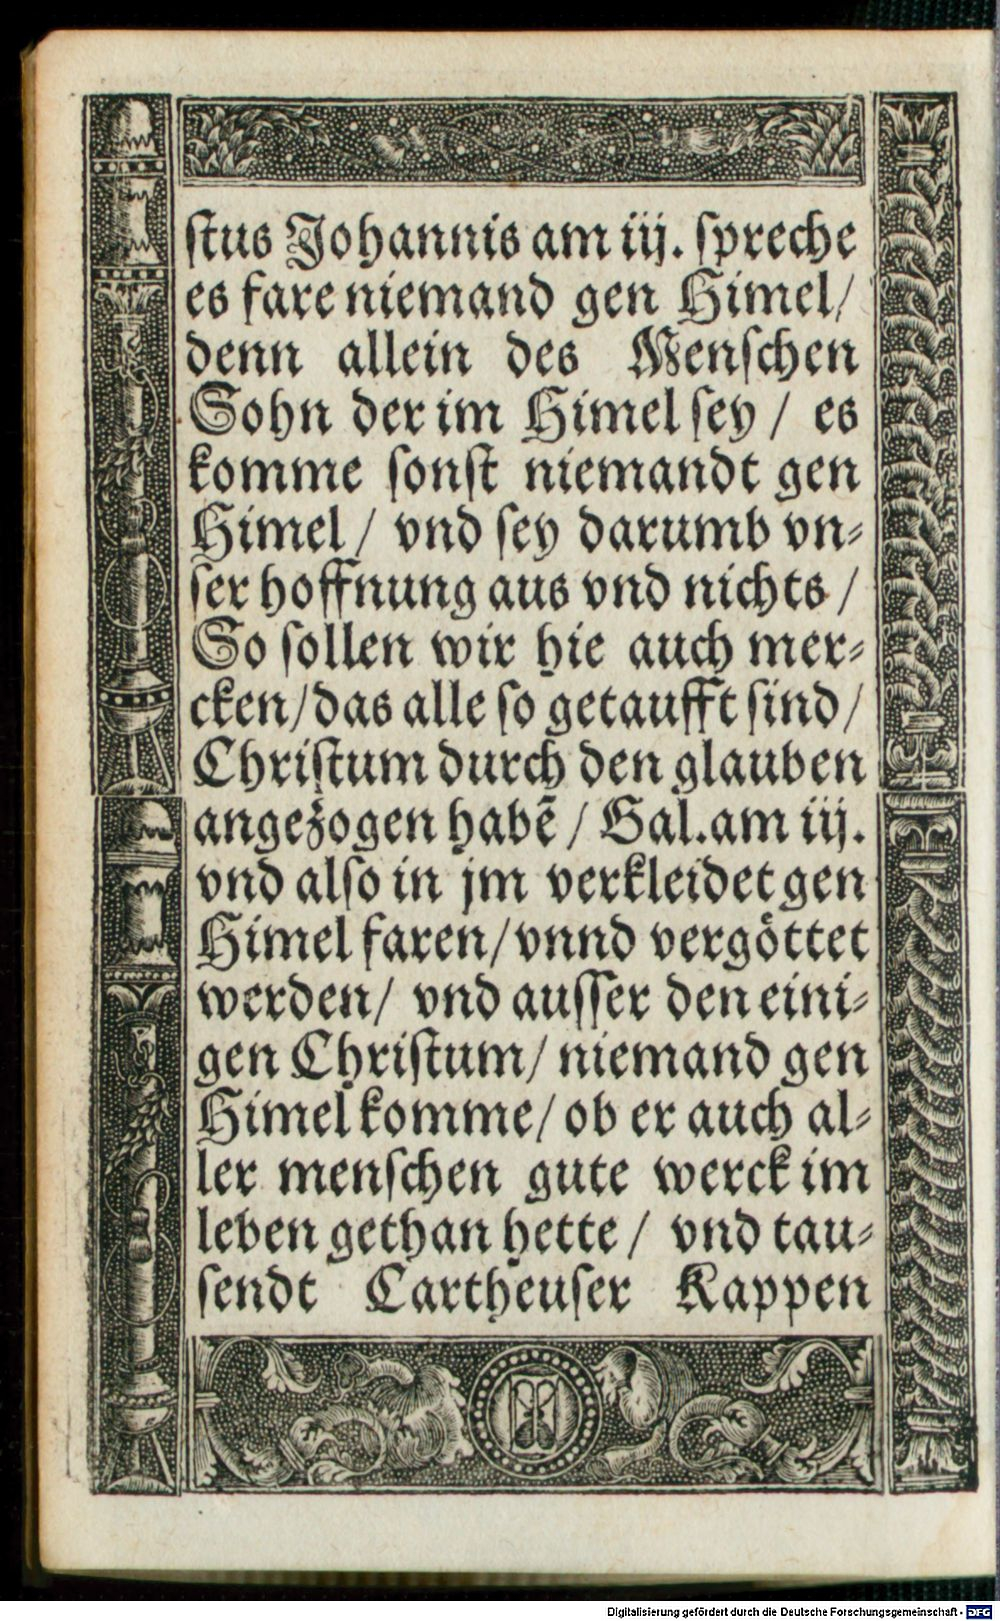 ſtus Johannis am iij. ſpreche
es fare niemand gen Himel/
denn allein des Menſchen
Sohn der im Himel ſey / es
komme ſonſt niemandt gen
Himel / vnd ſey darumb vn⸗
ſer hoffnung aus vnd nichts /
So ſollen wir hie auch mer⸗
cken/das alle ſo getaufft ſind/
Chriſtum durch den glauben
angezogen habẽ / Gal.am iij.
vnd alſo in jm verkleidet gen
Himel faren/vnnd vergöttet
werden/ vnd auſſer den eini⸗
gen Chriſtum/ niemand gen
Himel komme/ ob er auch al⸗
ler menſchen gute werck im
leben gethan hette / vnd tau⸗
ſendt Cartheuſer Kappen
Digitalisierung gefördert durch die Deutsche Forschungsgemeinschaft - DFG